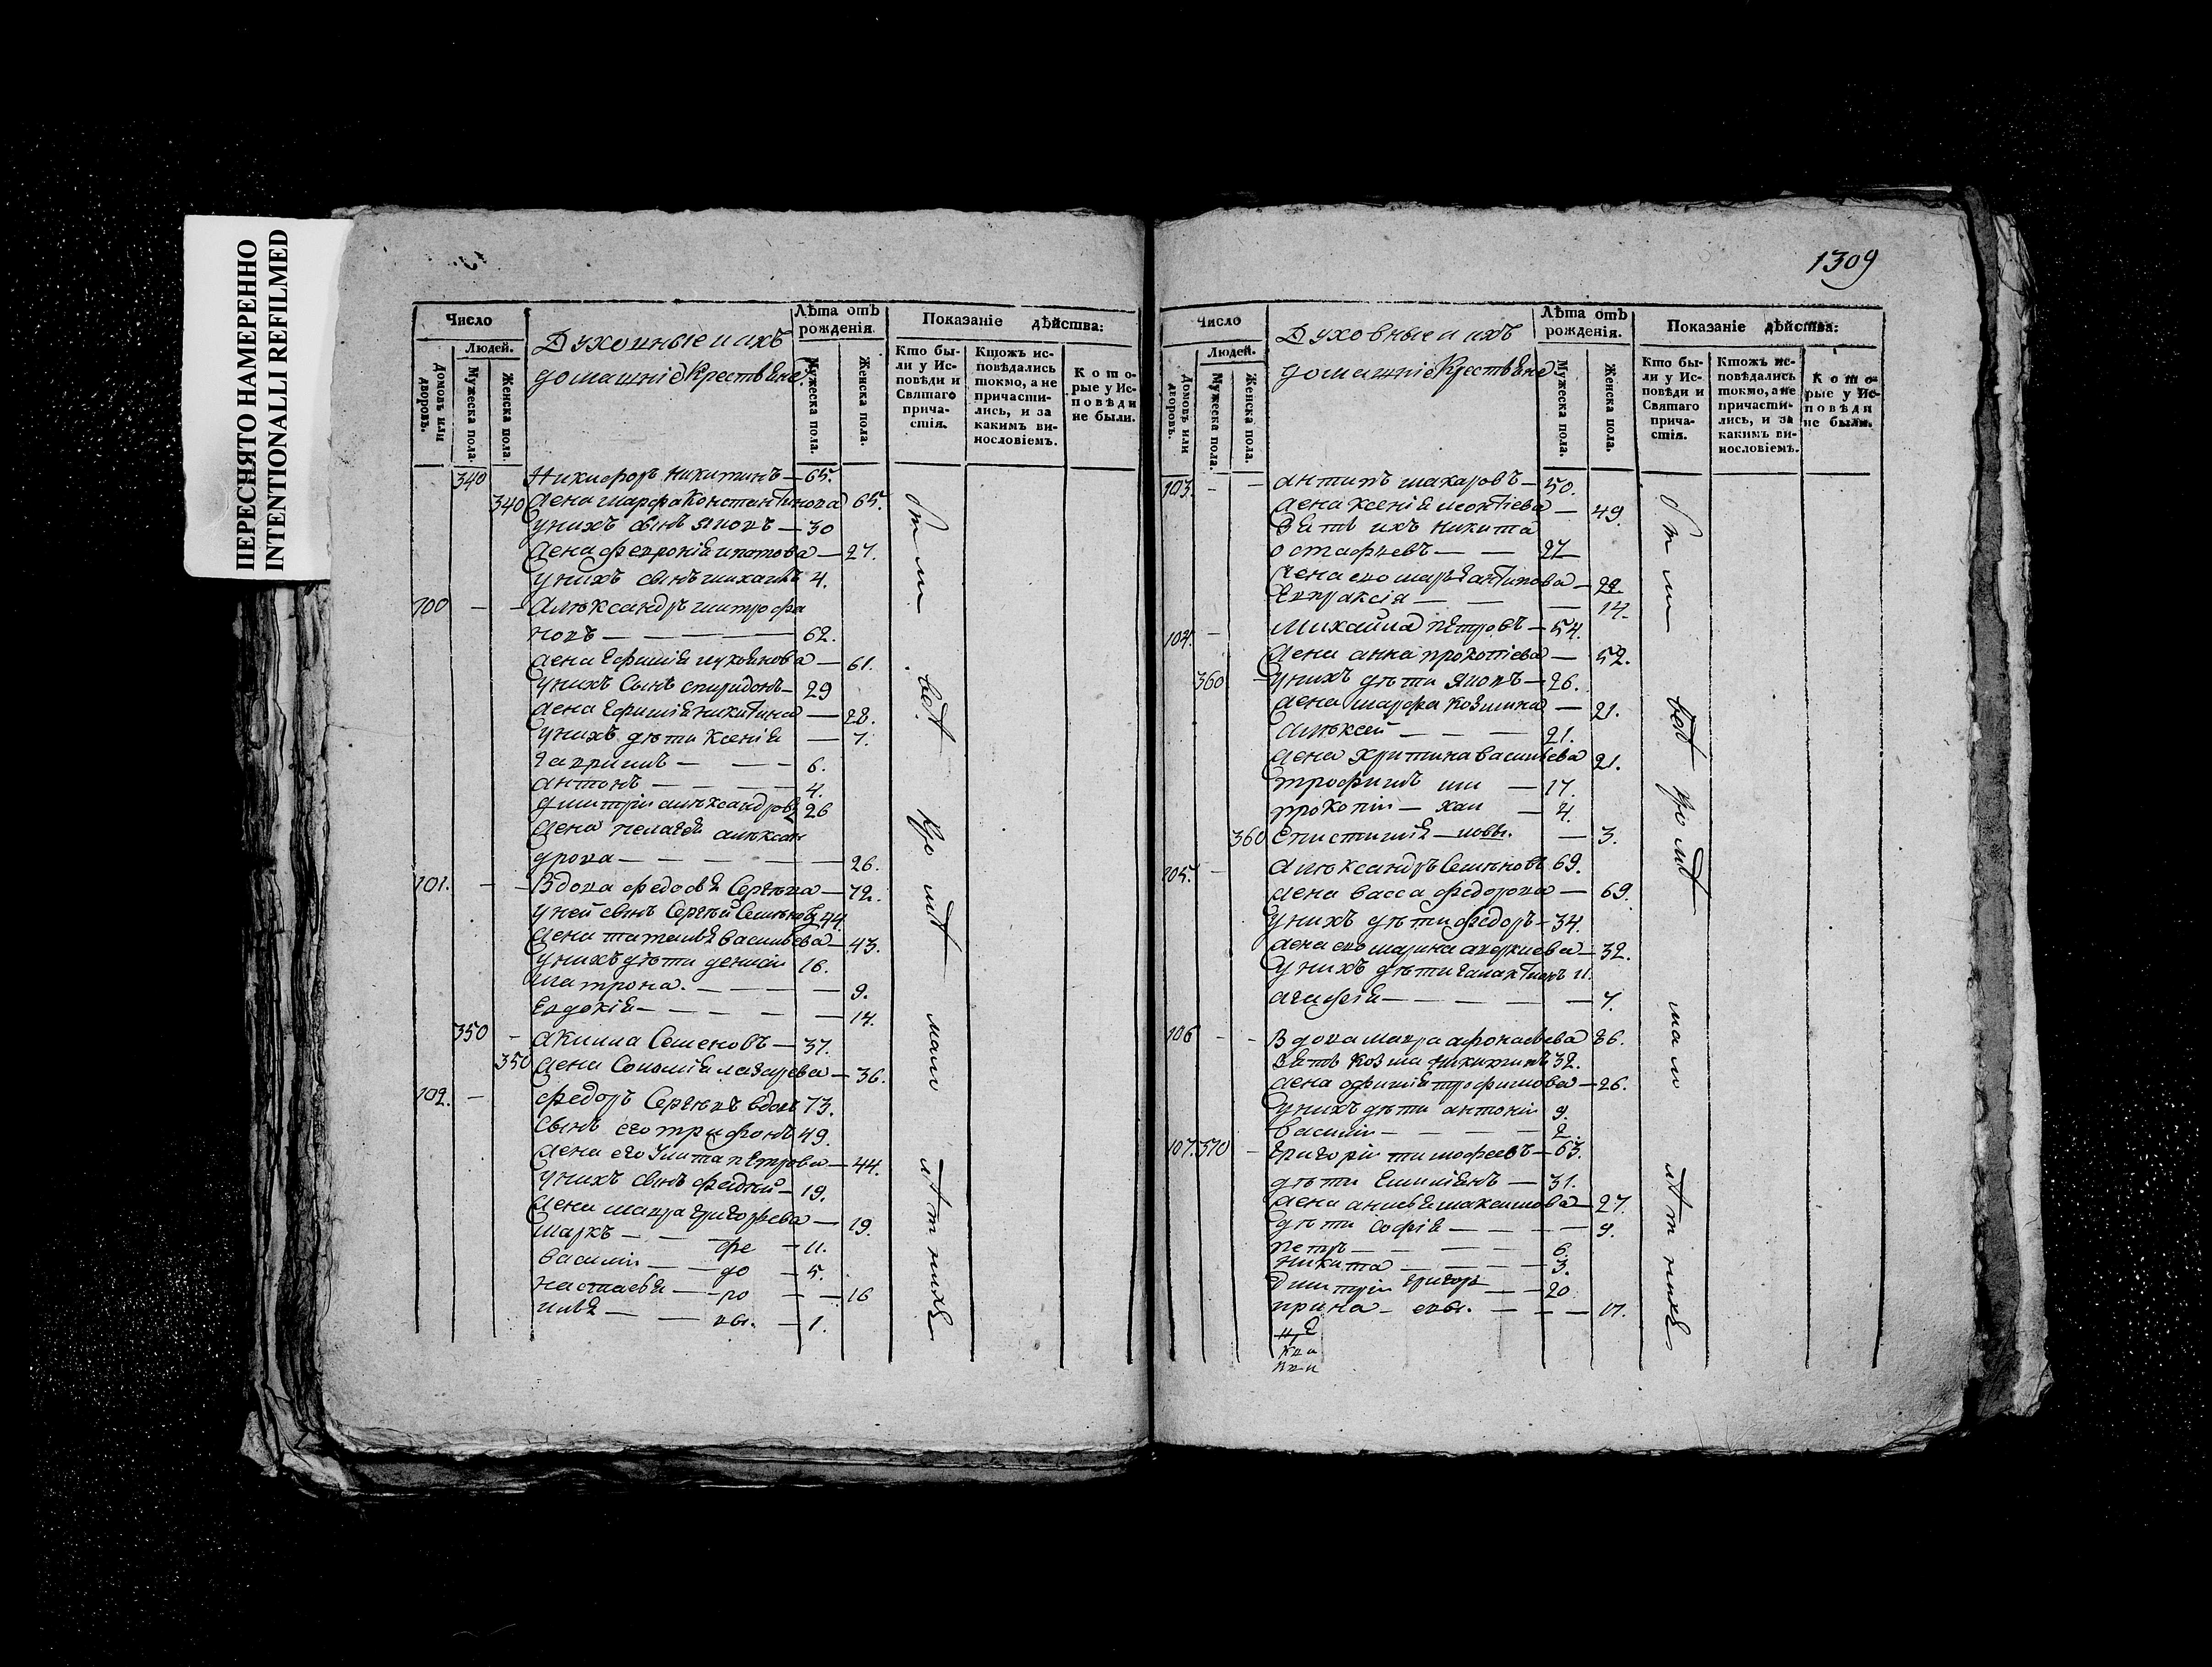 ПЕРЕСНЯТО НАМЕРЕННО
INTENTIONALLI REFILMED
Число
Людей.
Домовъ или дворовъ.
Мужеска пола.
Женска пола.
Духовные и ихъ
домашніе Крестьяне.
Лѣта отъ рожденія.
Мужеска пола.
Женска пола.
Показаніе дѣйства:
Кто бы-
ли у Ис-
повѣди и
Святаго
прича-
стія.
Ктожъ ис-
повѣдались
токмо, а не
причасти-
лись, и за
какимъ ви-
нословіемъ.
Кото-
рые у Ис-
повѣди
не были.
340 Никифоръ Никитинъ — 65.
340 Жена Марфа Константинова 65.
У нихъ сынъ Яковъ — 30
Жена Феврония Ипатова — 27.
У нихъ сынъ Михаилъ 4.
100 — — Алѣксандръ Митрофа
новъ — — — — 62.
Жена Ефимія Лукоянова — 61.
У нихъ Сынъ Спиридонъ — 29
Жена Ефимія Никитина — 28.
У нихъ дѣти Ксенія — 7.
Гавриилъ — — — 6.
Антонъ — — — — 4.
Дмитрій Алѣксандровъ 26
Жена Пелагея Алѣксан
дрова — — — — 26.
101. — — Вдова Федосья Сергѣева — 72.
У ней сынъ Сергѣй Семѣновъ 44.
Жена Татьяна Васильева — 43.
У нихъ дѣти Денисій 16.
Матрона. — — — — 9.
Евдокія — — — — 14.
350 — Акилла Семеновъ — 37.
350 Жена Соломія Лазарева — 36.
102. — Федоръ Сергѣевъ вдовъ 73.
Сынъ его Трифонъ 49.
Жена его Улита Петрова — 44.
У нихъ сынъ — 19.
Жена Мавра Григорьева — 19.
Маркъ — — фе — 11.
Василій — — до — 5.
Настасья — ро — — 16
Илья — — вы. — 1.
От
м
всѣ
мало
лѣтнихъ
1309
Число
Людей.
Домовъ или дворовъ.
Мужеска пола.
Женска пола.
Духовные и ихъ
домашніе Крестьяне
Лѣта отъ рожденія.
Мужеска пола.
Женска пола.
Показаніе дѣйства:
Кто бы-
ли у Ис-
повѣди и
Святаго
прича-
стія.
Ктожъ ис-
повѣдались
токмо, а не
причасти-
лись, и за
какимъ ви-
нословіемъ.
Кото-
рые у Ис-
повѣди
не были.
103. — — Антипъ Макаровъ — 50.
Жена Ксенія Леонтіева — 49.
Зять ихъ Никита
Остафьевъ — — 27
Жена его Марья Антипова — 22.
Евпраксія — — — 14.
104. — Михайла Петровъ — 54.
Жена Анна Прокопіева — 52.
360 — У нихъ дѣти Яковъ — 26.
Жена Марфа Козмина — 21.
Алѣксей — — — 21.
Жена Христина Васильева 21.
Трофимъ ми — 17.
Прокопій — хаи — 4.
360 Епистимія — ловы. — 3.
105. — Алѣксандръ Семѣновъ 69.
Жена Васса Федорова — 69.
У нихъ дѣти Федоръ — 34.
Жена его Марина Аверкиева — 32.
У нихъ дѣти Галактионъ 11.
Агафія — — — — 7.
106 — — Вдова Мавра Афонасьева 86.
Зять Козма Никитинъ 32.
Жена Офимія Трофимова — 26.
У нихъ дѣти Антоній 9.
Василій — — — — 2.
107. 370 — Григорій Тимофеевъ — 63.
Дѣти Емилиянъ — 31.
Жена Анисья Максимова — 27.
Дѣти Софія — — — 9.
Петръ — — — — 6.
Никита — — — — 3.
Дмитрій Григорь — — 20
Ирина — евы. — — 17.
От
м
всѣ
кромѣ
мало
лѣтнихъ